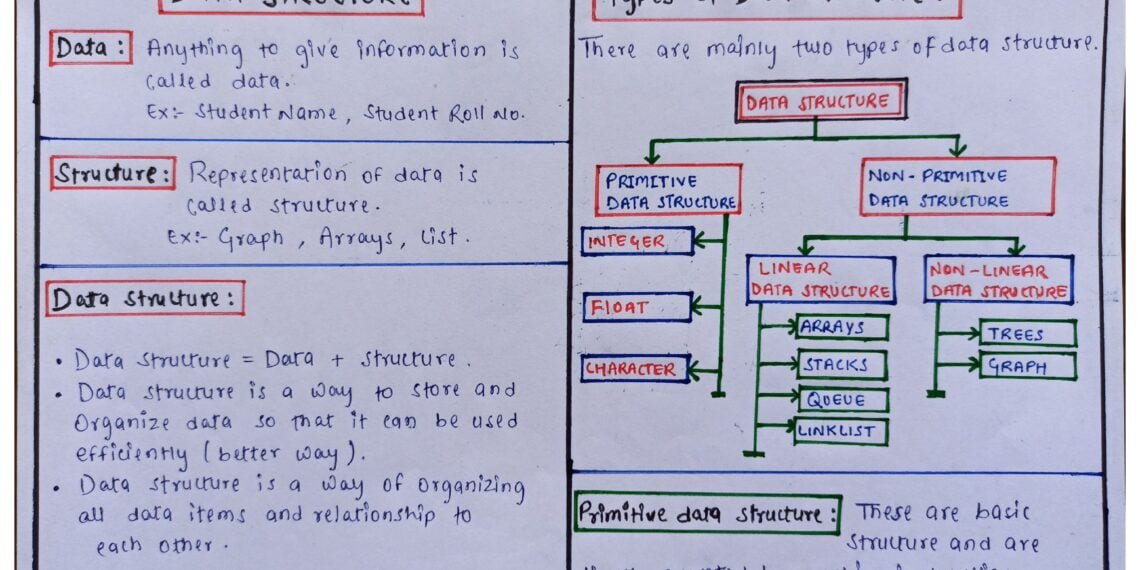 DATA STRUCTURE
Data : Anything to give information is
called data.
Ex:- Student Name, Student Roll No.
Structure: Representation of data is
called structure.
Ex:- Graph, Arrays, List.
Data structure:
• Data structure = Data + structure.
• Data structure is a way to store and
Organize data so that it can be used
efficiently (better way).
• Data structure is a way of organizing
all data items and relationship to
each other.
Types of Data structure
There are mainly two types of data structure.
DATA STRUCTURE
PRIMITIVE
DATA STRUCTURE
INTEGER
FLOAT
CHARACTER
NON-PRIMITIVE
DATA STRUCTURE
LINEAR
DATA STRUCTURE
ARRAYS
STACKS
QUEUE
LINKLIST
NON-LINEAR
DATA STRUCTURE
TREES
GRAPH
Primitive data structure: These are basic
structure and are